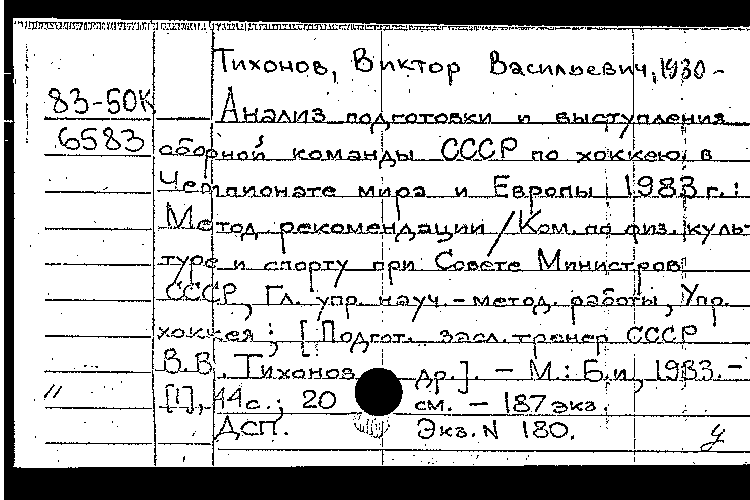 Тихонов, Виктор Васильевич, 1930-
83-50К
Анализ подготовки и выступления
6583
сборной команды СССР по хоккею в
Чемпионате мира и Европы 1983 г.:
Метод. рекомендации / Ком. по физ. куль-
туре и спорту при Совете Министров
СССР, Гл. упр. науч.-метод. работы, Упр.
хоккея; [Подгот. засл. тренер СССР
В.В. Тихонов др.]. - М.: Б.и, 1983.-
[1], 44 с.; 20 см. - 187 экз.
ДСП. Экз. N 180.